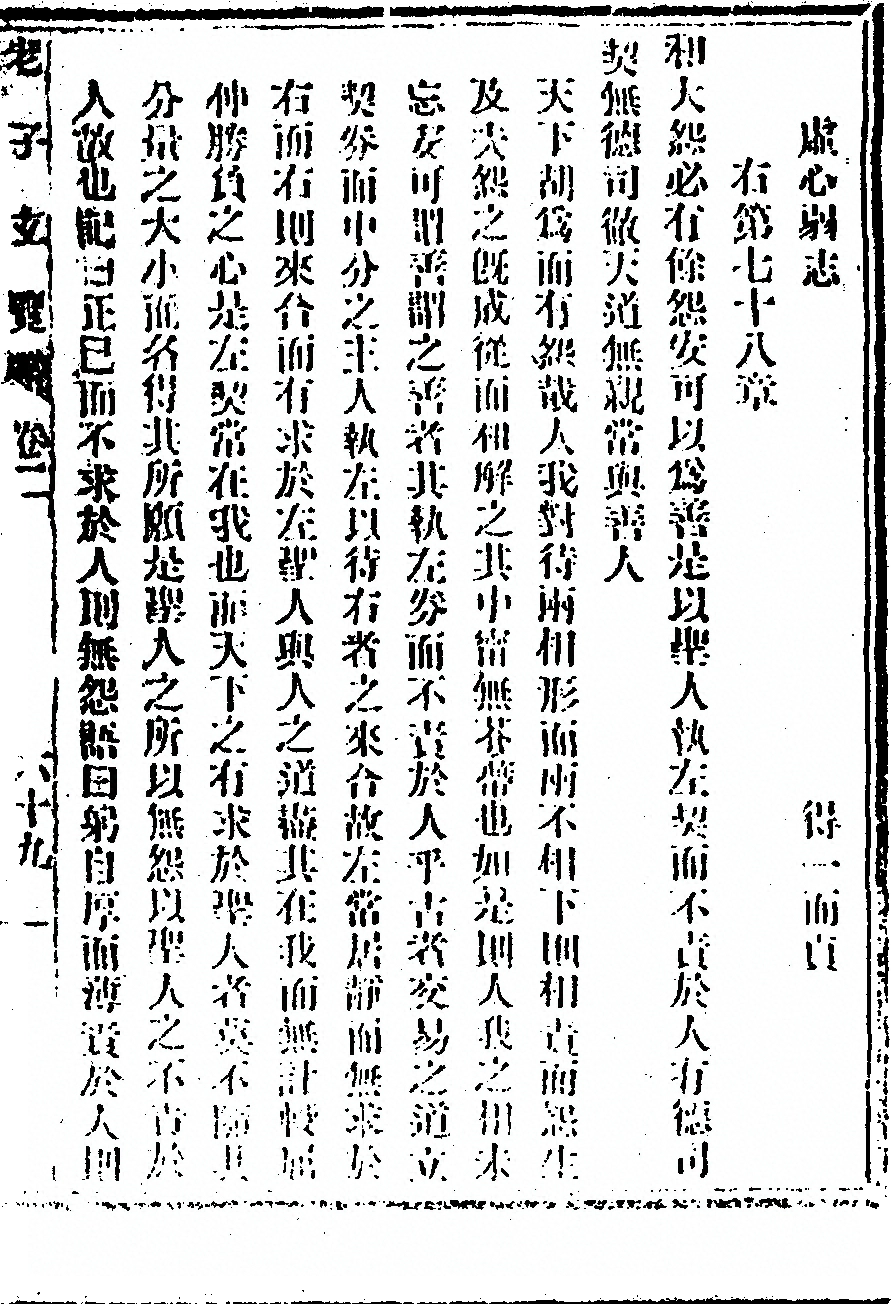 虛心弱志 得一而貞
右第七十八章
和大怨必有餘怨安可以爲善是以聖人執左契而不責於人有德司
契無德司徹天道無親常與善人
天下胡爲而有怨哉人我對待兩相形而兩不相下則相責而怨生
及夫怨之旣成從而和解之其中甯無芥蒂也如是則人我之相未
忘安可謂善謂之善者其執左券而不責於人乎古者交易之道立
契券而中分之主人執左以待右者之來合故左常居靜而無求於
右而右則來合而有求於左聖人與人之道盡其在我而無計較屈
伸勝負之心是左契常在我也而天下之有求於聖人者莫不隨其
分量之大小而各得其所願是聖人之所以無怨以聖人之不責於
人故也記曰正己而不求於人則無怨語曰躬自厚而薄責於人則
老子玄覽 卷二 六十九